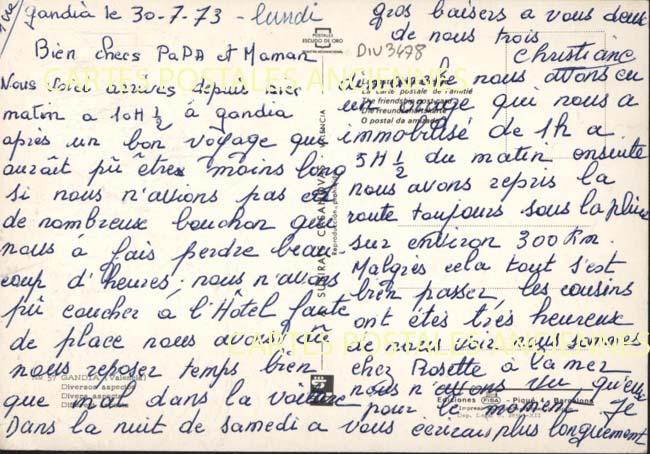 1ère
Gandià le 30-7-73 - lundi
Bien chers PaPA et Maman
Nous voici arrivés depuis hier
matin à 10H ½ à gandia
après un bon voyage que
aurait pû être moins long
si nous n'avions pas eu
de nombreux bouchon que
nous à fais perdre beau
coup d'heures, nous n'avons
pû coucher à l'Hôtel faute
de place nous avons dû
nous reposer temps bien
que mal dans la voiture
Dans la nuit de samedi a
dimanche nous avons eu
un orage qui nous a
immobilisé de 1h a
5H ½ du matin ensuite
nous avons repris la
route toujours sous la pluie
sur environ 300 Km.
Malgrès cela tout s'est
bien passer, les cousins
ont étés très heureux
de nous voir, nous sommes
chez Rosette à la mer
nous n'avons vu qu'eux
pour le moment Je
vous écrirais plus longuement
gros baisers a vous deux
de nous trois
Christiane
DIV3478
POSTALES
ESCUDO DE ORO
La carte postale de l'amitié
The friendship post card
O postal da amizade
No 57 GANDIA (Valencia)
Diversos aspectos
Divers aspects
Ediciones FISA - Piqué
Barcelona
CARTES POSTALES ANCIENNES
CARTES POSTALES ANCIENNES